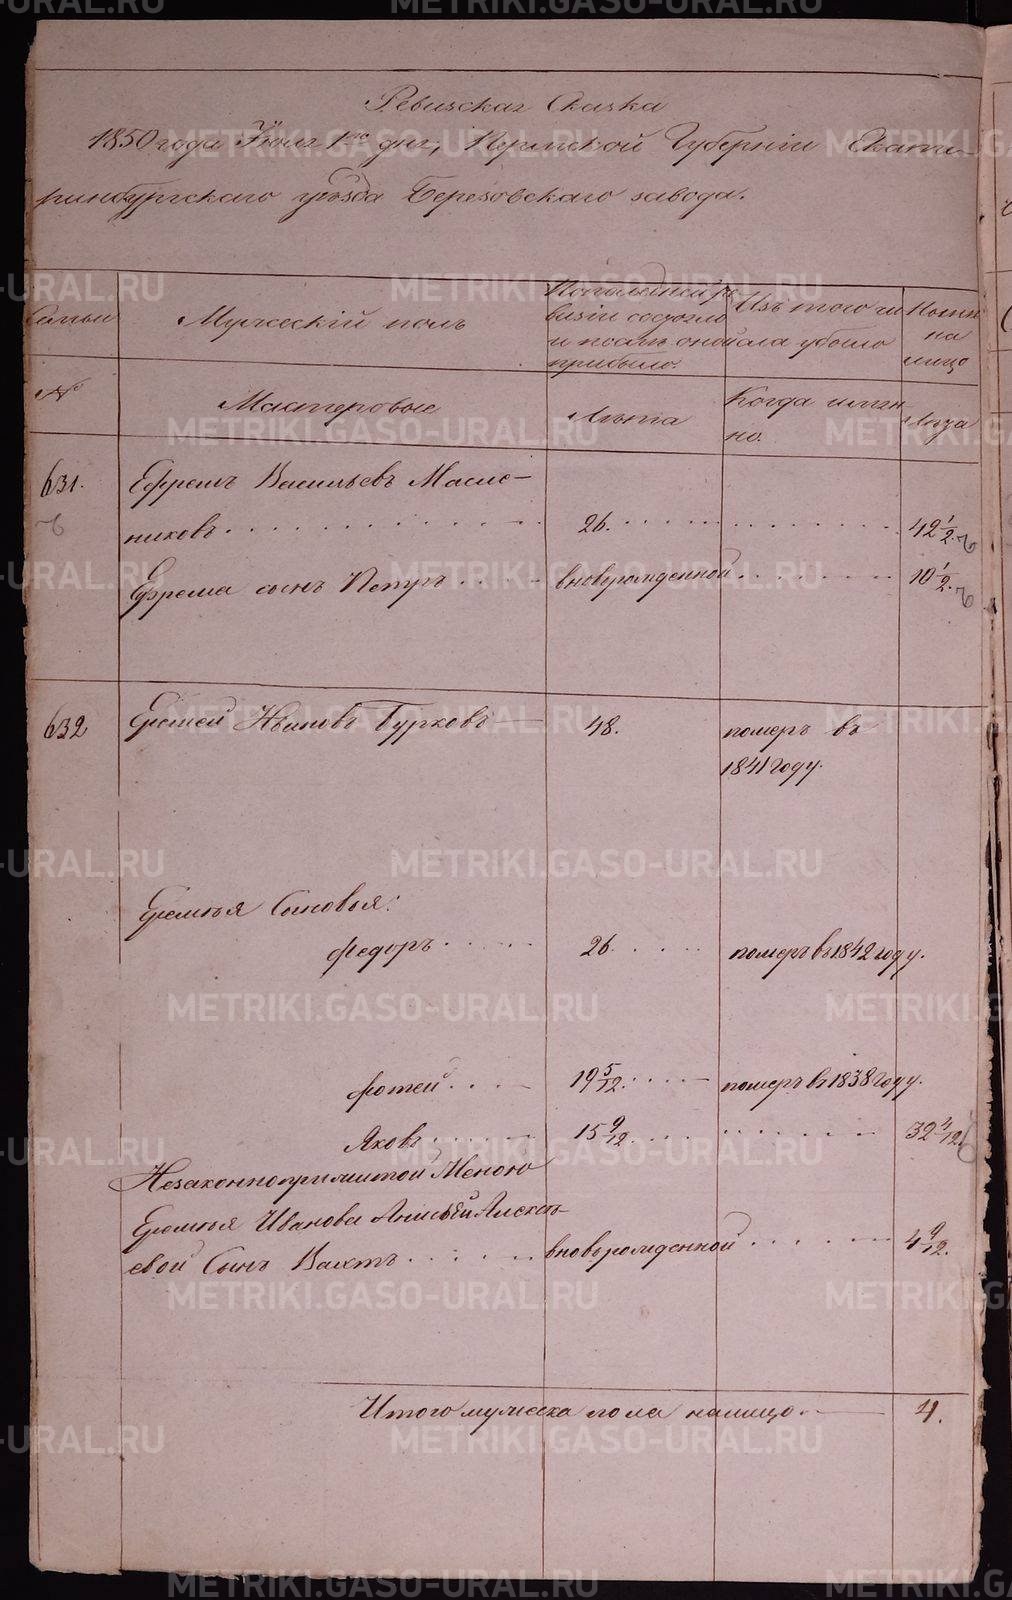 Ревизская Сказка
1850 года Июля 1го дня, Пермской Губернiи Екате-
ринбургскаго уѣзда Березовскаго завода.
Семьи
Мужескiй полъ
По последней ре
визiи состояло
и после оной
прибыло.
Изъ того чи
сла убыло
Ныне
на
лицо
№
Мастеровые
Лѣта
Когда имян
но.
Лѣта
631.
Ефремъ Васильевъ Масле-
никовъ
26.
42 1/2.
Ефрема сынъ Петръ
вновьрожденной
10 1/2.
632
Ермей Ивановъ Турковъ
48.
померъ въ
1841 году.
Ермея Сыновья:
Федоръ
26.
померъ въ 1842 году.
Фотей
19 5/12.
померъ въ 1838 году.
Яковъ
15 9/12.
32 4/12.
Незаконноприжитой Женою
Ермея Иванова Анисьей Алексѣ-
евой Сынъ
вновьрожденной
4 9/12.
Итого мужеска пола налицо
4.
METRIKI.GASO-URAL.RU